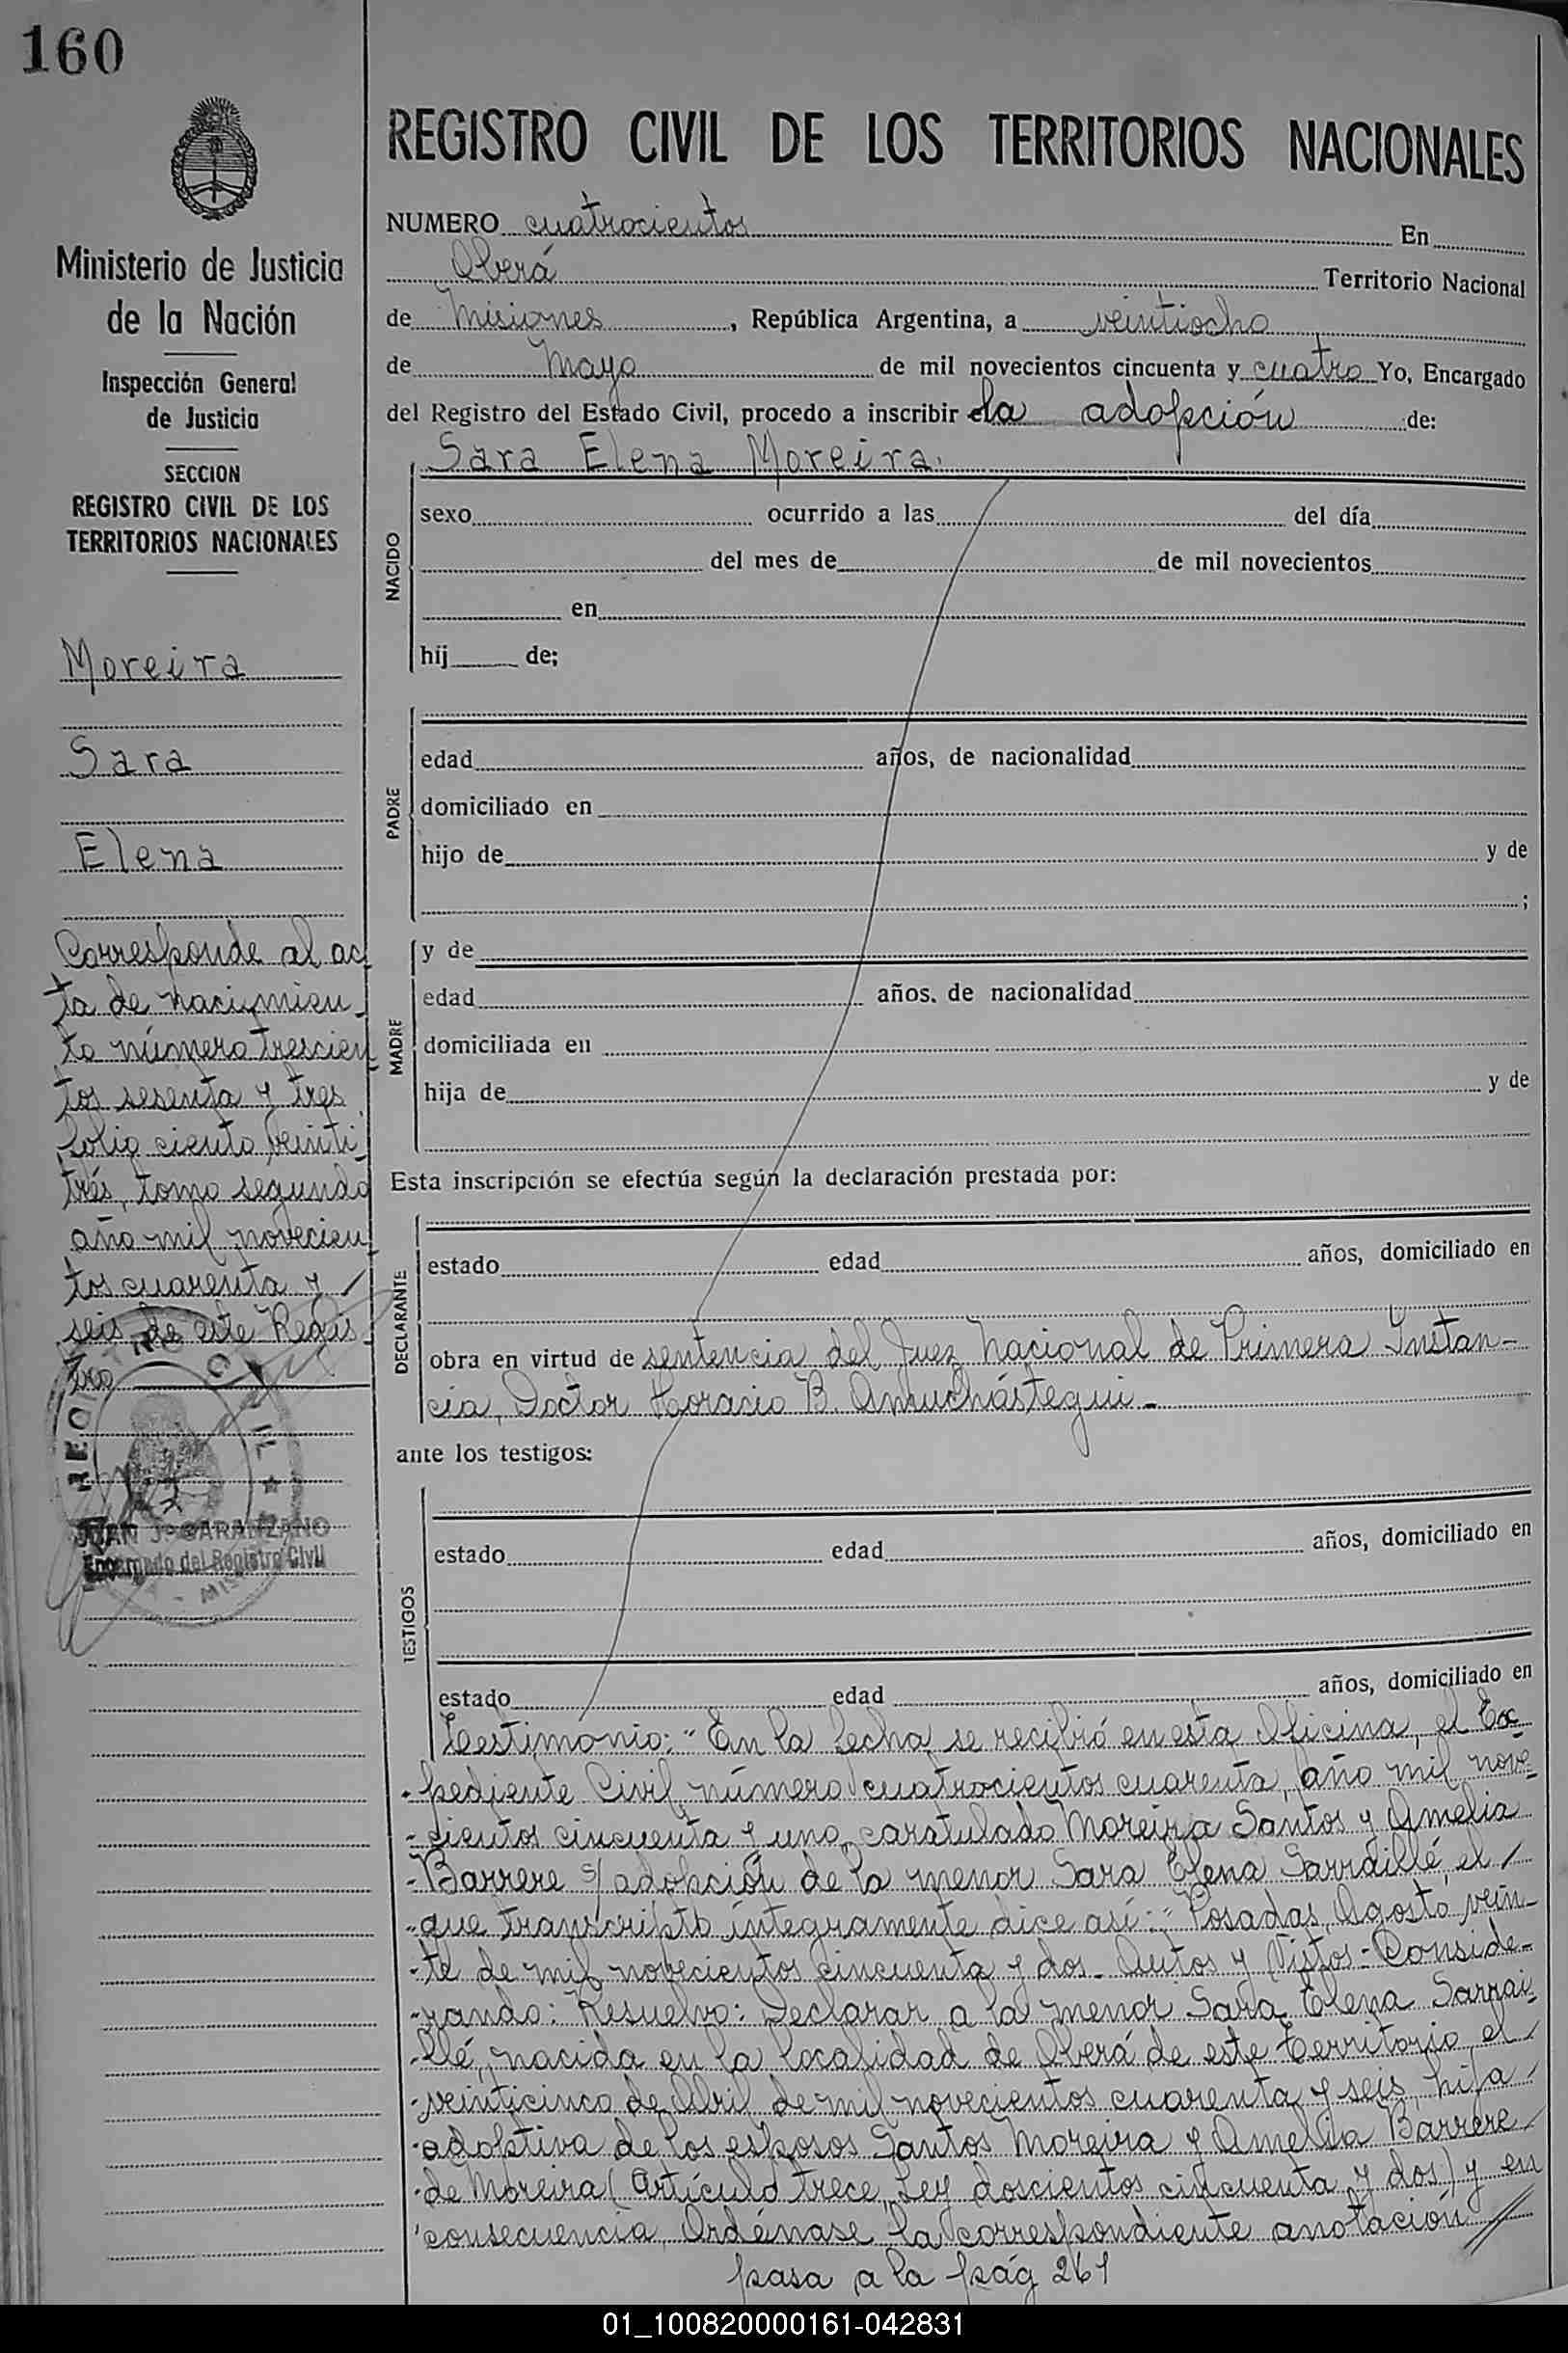 160
Ministerio de Justicia
de la Nación
Inspección General
de Justicia
SECCION
REGISTRO CIVIL DE LOS
TERRITORIOS NACIONALES
Moreira
Sara
Elena
Corresponde al ac
ta de nacimien_
to número trescien
tos sesenta y tres
folio ciento veinti_
trés, tomo segundo
año mil novecien_
tos cuarenta y /
seis de este Regis_
tro
REGISTRO CIVIL
JUAN J. GARANZANO
Encargado del Registro Civil
REGISTRO CIVIL DE LOS TERRITORIOS NACIONALES
NUMERO cuatrocientos En
Oberá Territorio Nacional
de Misiones, República Argentina, a veintiocho
de Mayo de mil novecientos cincuenta y cuatro Yo, Encargado
del Registro del Estado Civil, procedo a inscribir la adopción de:
Sara Elena Moreira.
NACIDO
sexo ocurrido a las del día
del mes de de mil novecientos
en
hij de;
PADRE
edad años, de nacionalidad
domiciliado en
hijo de y de
;
MADRE
y de
edad años. de nacionalidad
domiciliada en
hija de y de
Esta inscripción se efectúa según la declaración prestada por:
DECLARANTE
estado edad años, domiciliado en
obra en virtud de sentencia del Juez Nacional de Primera Instan-
cia, Doctor Horacio B. Amuchástegui.-
ante los testigos:
TESTIGOS
estado edad años, domiciliado en
estado edad años, domiciliado en
Testimonio: "En la fecha se recibió en esta Oficina, el Ex
pediente Civil número cuatrocientos cuarenta, año mil nove-
cientos cincuenta y uno, caratulado Moreira Santos y Amelia
Barrere s/ adopción de la menor Sara Elena Sarraillé, el /
que transcripto íntegramente dice así: "Posadas, Agosto vein-
te de mil novecientos cincuenta y dos.- Autos y Vistos:- Conside-
rando: Resuelvo: Declarar a la menor Sara Elena Sarrai
llé, nacida en la localidad de Oberá de este Territorio, el /
veinticinco de Abril de mil novecientos cuarenta y seis, hija /
adoptiva de los esposos Santos Moreira y Amelia Barrere /
de Moreira (Artículo trece, Ley doscientos cincuenta y dos) y en
consecuencia Ordénase la correspondiente anotación //
pasa a la pág 261
01_100820000161-042831